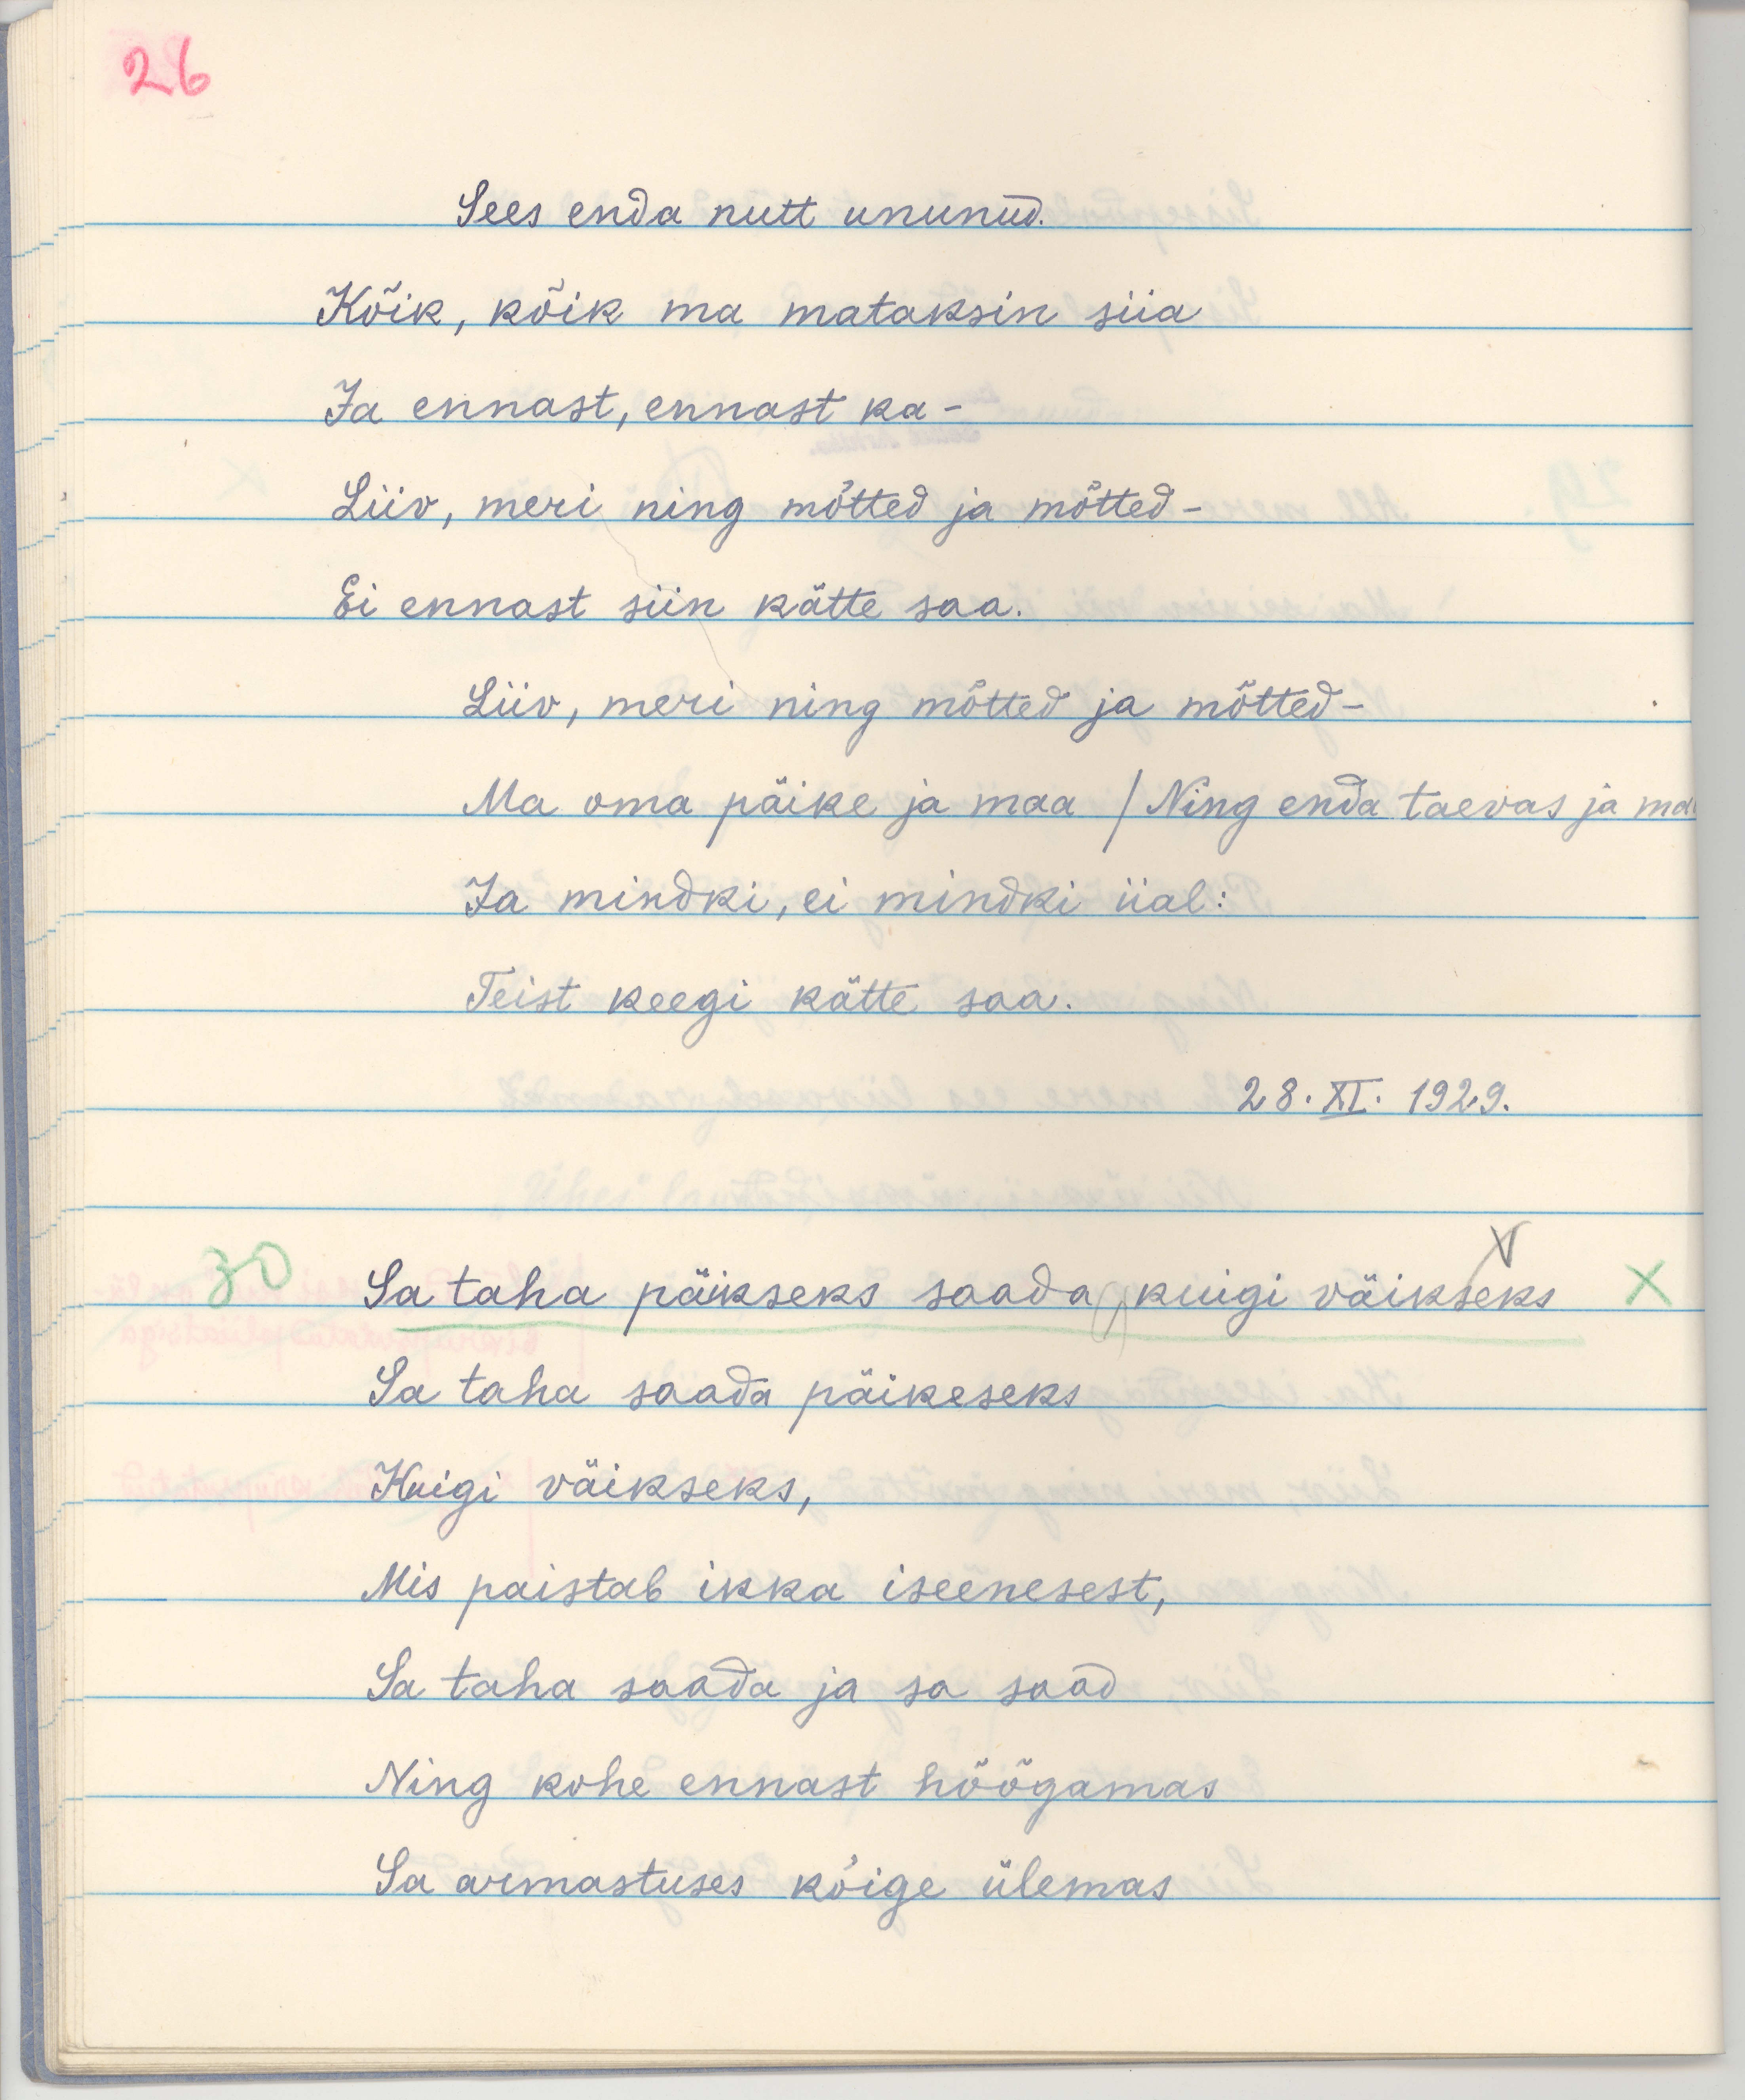 26
Sees enda nutt ununud.
Kõik, kõik ma mataksin siia
Ja ennast, ennast ka-
Liiv, meri ning mõtted ja mõtted-
Ei ennast siin kätte saa.
Liiv, meri ning mõtted ja mõtted-
Ma oma päike ja maa / Ning enda taevas ja maa
Ja mindki, ei mindki iial:
Teist keegi kätte saa.
28. XI. 1929.
30 Sa taha päikseks saada, kuigi väikseks X
Sa taha saada päikeseks
Kuigi väikseks,
Mis paistab ikka iseenesest,
Sa taha saada ja sa saad
Ning kohe ennast hõõgamas
Sa armastuses kõige ülemas